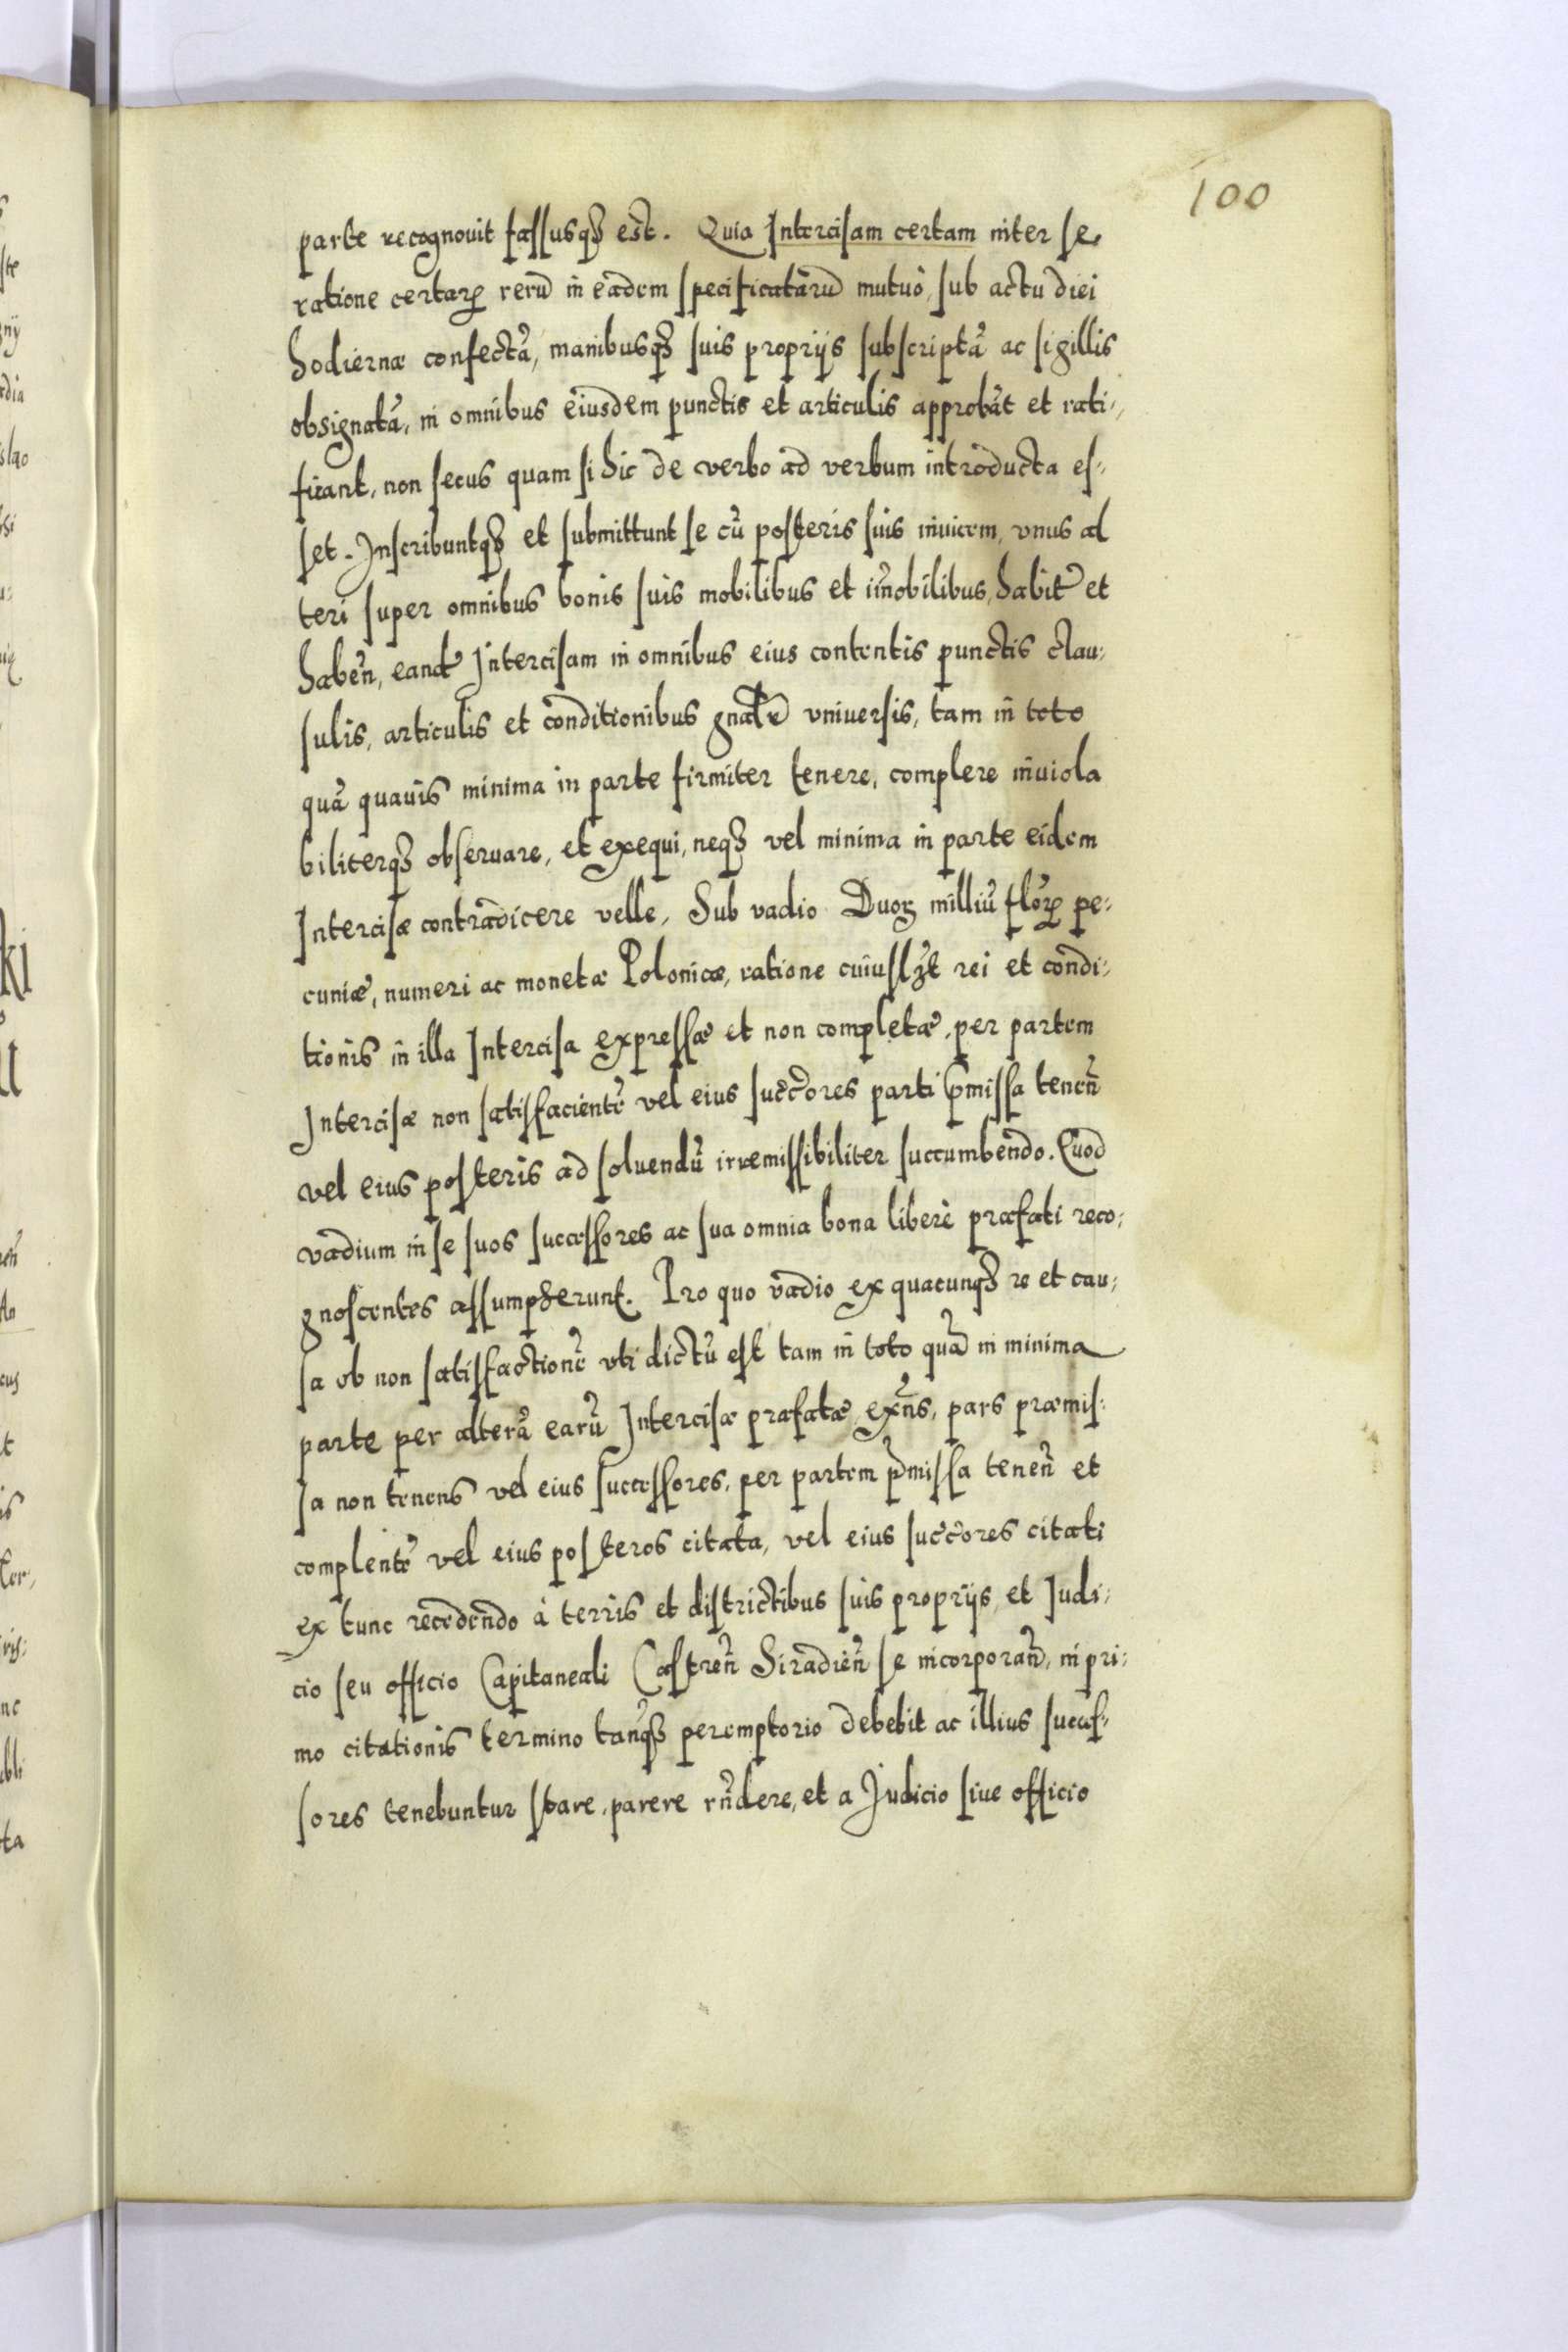 100
parte recognouit fassusqȝ est. Quia Intercisam certam inter se
ratione certarꝝ rerū in eadem specificatarū mutuò, sub actu diei
hodiernæ confectā, manibusqȝ suis proprijs subscriptā ac sigillis
obsignatā, in omnibus eiusdem punctis et articulis approbāt et rati-
ficant, non secus quam si hic de verbo ad verbum introducta es-
set. Inscribuntqȝ et submittunt se cū posteris suis inuicem, vnus al
teri super omnibus bonis suis mobilibus et im̃obilibus, habit̃ et
habeñ, eand̃ Intercisam in omnibus eius contentis punctis clau-
sulis, articulis et conditionibus gñalr̃ vniuersis, tam in toto
quā quauis minima in parte firmiter tenere, complere inuiola
biliterqȝ obseruare, et exequi, neqȝ vel minima in parte eidem
Intercisæ contradicere velle, Sub vadio Duoꝝ milliū florꝝ pe-
cuniæ, numeri ac monetæ Polonicæ, ratione cuiuslȝt rei et condi-
tionis in illa Intercisa expressæ et non completæ, per partem
Intercisæ non satisfacient̃ vel eius succ̃ores parti p̃missa teneñ
vel eius posteris ad soluendū irremissibiliter succumbendo. Quod
vadium in se suos successores ac sua omnia bona liberè præfati reco-
gnoscentes assumpserunt. Pro quo vadio ex quacunqȝ re et cau-
sa ob non satisfactionē vti dictū est tam in toto quā in minima
parte per alterā earū Intercisæ præfatæ, ex̃ns, pars præmis-
sa non tenens vel eius successores, per partem p̃missa teneñ et
complent̃ vel eius posteros citata, vel eius succ̃ores citati
ex tunc recedendo à terris et districtibus suis proprijs, et Judi-
cio seu officio Capitaneali Castreñ Siradieñ se incorporañd, in pri-
mo citationis termino tanqȝ peremptorio debebit ac illius succes-
sores tenebuntur stare, parere rñdere, et a Judicio siue officio